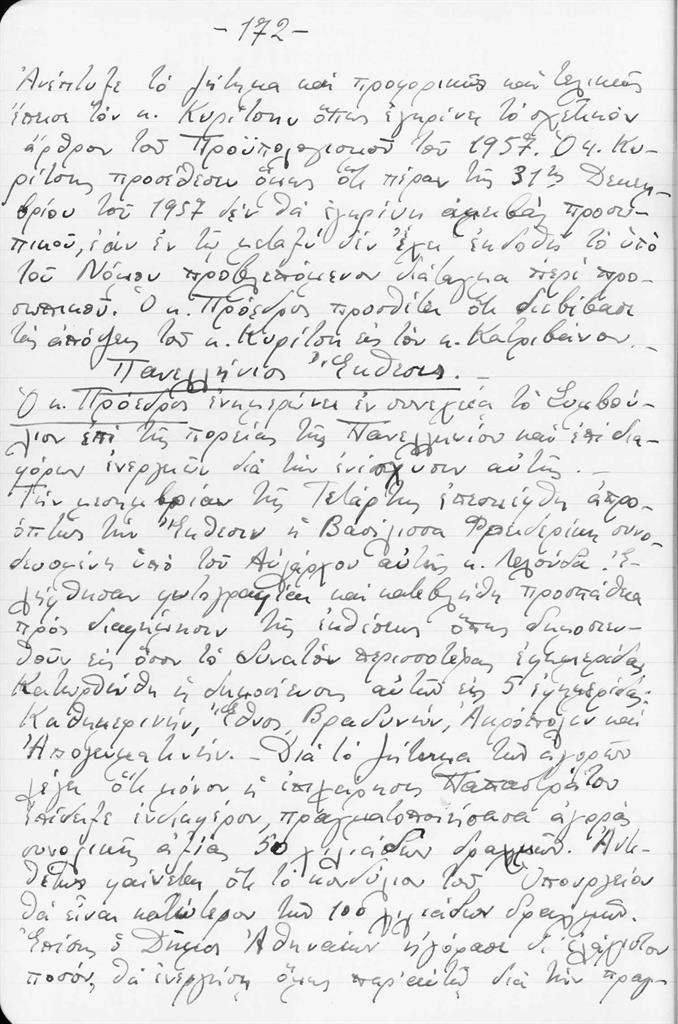 -172-
Ἀνέπτυξε τὸ ζήτημα καὶ προφορικῶς καὶ τελικῶς
ἔπεισε τὸν κ. Κυρίτσην ὅπως ἐγκρίνῃ τὸ σχετικὸν
ἄρθρον τοῦ Προϋπολογισμοῦ τοῦ 1957. Ὁ κ. Κυ-
ρίτσης προσέθεσεν ὅμως ὅτι πέραν τῆς 31ης Δεκεμ-
βρίου τοῦ 1957 δὲν θὰ ἐγκρίνῃ ἀμοιβὰς προσω-
πικοῦ, ἐὰν ἐν τῷ μεταξὺ δὲν ἔχει ἐκδοθῆ τὸ ὑπὸ
τοῦ Νόμου προβλεπόμενον διάταγμα περὶ προ-
σωπικοῦ. Ὁ κ. Πρόεδρος προσθέτει ὅτι διεβίβασε
τὰς ἀπόψεις τοῦ κ. Κυρίτση εἰς τὸν κ. Κατριβάνον.-
Πανελλήνιος Δ' Ἔκθεσις.-
Ὁ κ. Πρόεδρος ἐνημερώνει ἐν συνεχείᾳ τὸ Συμβού-
λιον ἐπὶ τῆς πορείας τῆς Πανελληνίου καὶ ἐπὶ δια-
φόρων ἐνεργειῶν διὰ τὴν ἐνίσχυσιν αὐτῆς.-
Τὴν μεσημβρίαν τῆς Τετάρτης ἐπεσκέφθη ἀπρο-
όπτως τὴν Ἔκθεσιν ἡ Βασίλισσα Φρειδερίκη συνο-
δευομένη ὑπὸ τοῦ Αὐλάρχου αὐτῆς κ. Λελούδα. Ἐ-
λήφθησαν φωτογραφίαι καὶ κατεβλήθη προσπάθεια
πρὸς διαφήμησιν τῆς ἐκθέσεως ὅπως δημοσιευ-
θοῦν εἰς ὅσον τὸ δυνατὸν περισσοτέρας ἐφημερίδας.
Κατωρθώθη ἡ δημοσίευσις αὐτῶν εἰς 5 ἐφημερίδας:
Καθημερινήν, Ἔθνος, Βραδυνήν, Ἀκρόπολιν καὶ
Ἀπογευματινήν.- Διὰ τὸ ζήτημα τῶν ἀγορῶν
λέγει ὅτι μόνον ἡ ἐπιχείρησις Παπαστράτου
ἐπέδειξε ἐνδιαφέρον, πραγματοποιήσασα ἀγορὰς
συνολικῆς ἀξίας 50 χιλιάδων δραχμῶν. Ἀντι-
θέτως φαίνεται ὅτι τὸ κονδύλιον τοῦ Ὑπουργείου
θὰ εἶναι κατώτερον τῶν 100 χιλιάδων δραχμῶν.
Ἐπίσης ὁ Δῆμος Ἀθηναίων ἠγόρασε δι' ἐλάχιστον
ποσόν, θὰ ἐνεργήσῃ ὅμως παρ' αὐτῷ διὰ τὴν πραγ-